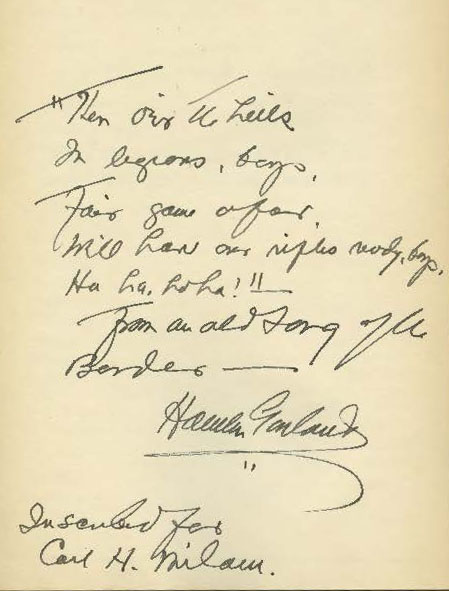 "Then o'er the hills
In legions, boys,
Fair game afar,
We'll have our rifles ready, boys,
Ha ha, ha ha!"
From an old Song of the
Border —
Hamlin Garland
Inscribed for
Carl H. Milam.